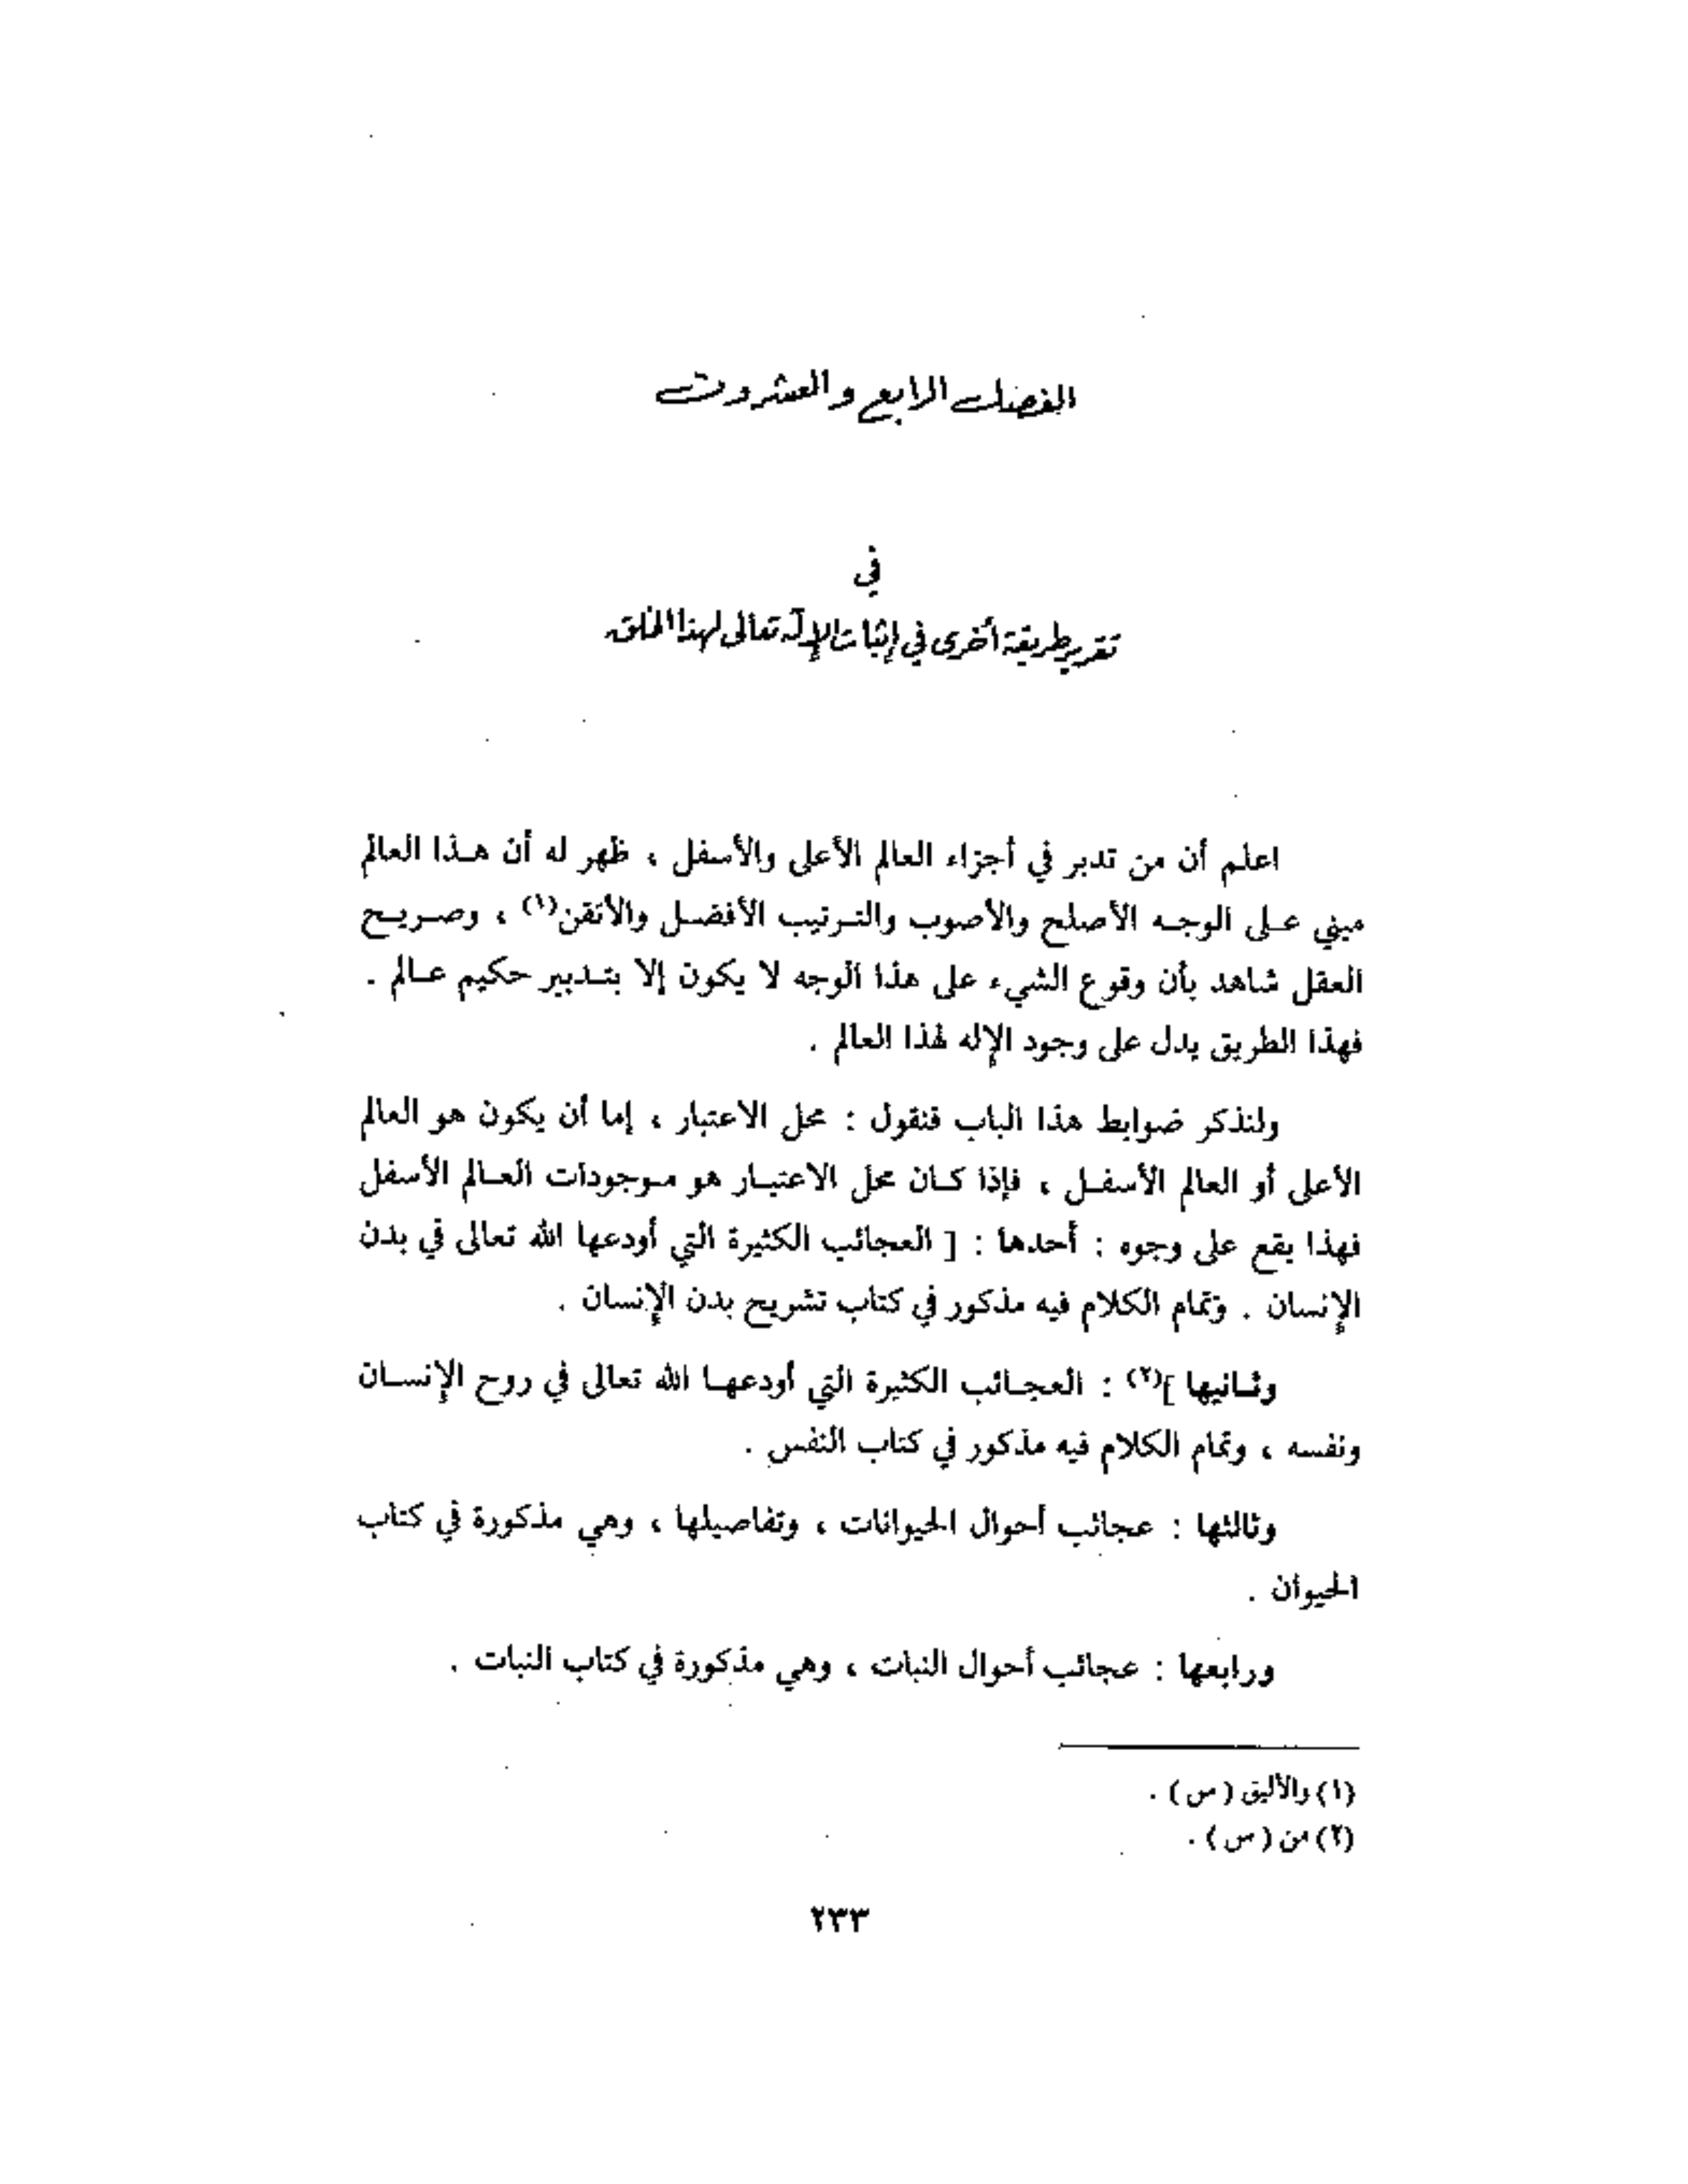 الفصل الرابع والعشرون
في
تقرير طريقة أخرى في إثبات الإله تعالى لهذا الخلق
اعلم أن من تدبر في أجزاء العالم الأعلى والأسفل ، ظهر له أن هـذا العالم
مبني عـلى الوجـه الأصلح والأصوب والتـرتيب الأفضـل والأتقن(١) ، وصـريـح
العقل شاهد بأن وقوع الشيء على هذا الوجه لا يكون إلا بتـدبير حكيم عـالم .
فهذا الطريق يدل على وجود الإله لهذا العالم .
ولنذكر ضوابط هذا الباب فنقول : محل الاعتبار ، إما أن يكون هو العالم
الأعلى أو العالم الأسفـل ، فإذا كـان محل الاعتبـار هو مـوجودات العـالم الأسفل
فهذا يقع على وجوه : أحدها : [ العجائب الكثيرة التي أودعها الله تعالى في بدن
الإنسان . وتمام الكلام فيه مذكور في كتاب تشريح بدن الإنسان .
وثـانيها ](٢) : العجـائب الكثيرة التي أودعهـا الله تعالى في روح الإنسـان
ونفسه ، وتمام الكلام فيه مذكور في كتاب النفس .
وثالثها : عجائب أحوال الحيوانات ، وتفاصيلها ، وهي مذكورة في كتاب
الحيوان .
ورابعها : عجائب أحوال النبات ، وهي مذكورة في كتاب النبات .
(١) والأليق ( س ) .
(٢) من ( س ) .
٢٣٣